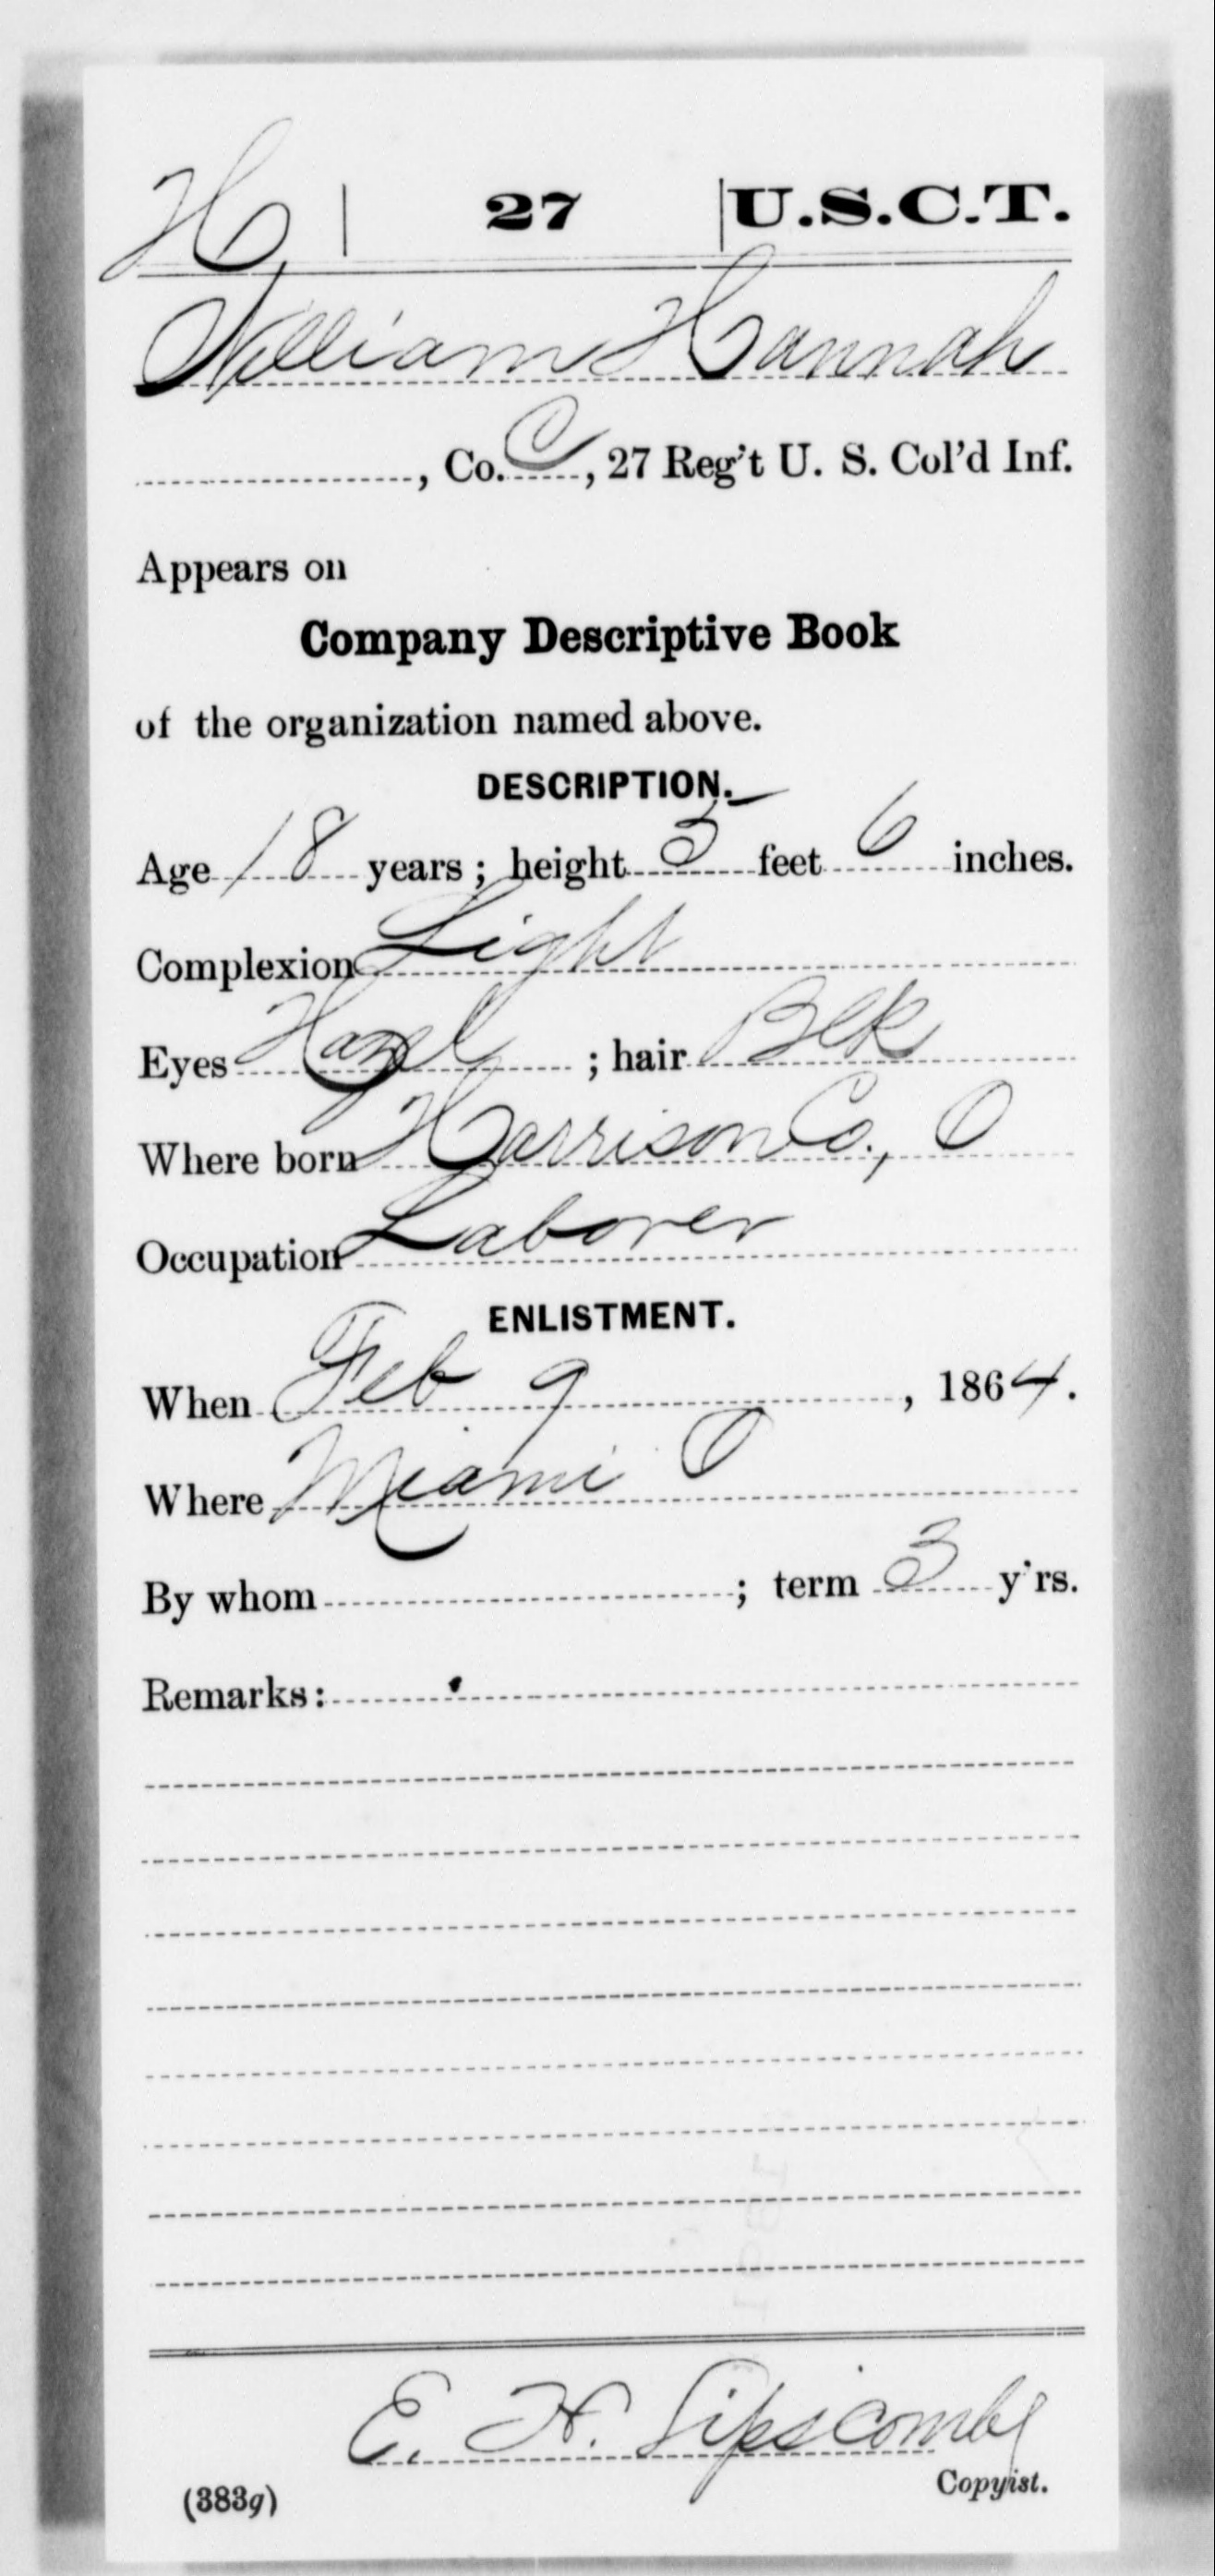 H | 27 | U.S.C.T.
William Hannah
, Co. C, 27 Reg't U. S. Col'd Inf.
Appears on
Company Descriptive Book
of the organization named above.
DESCRIPTION.
Age 18 years; height 5 feet 6 inches.
Complexion Light
Eyes Hazel; hair Blk
Where born Harrison Co., O
Occupation Laborer
ENLISTMENT.
When Feb 9, 1864.
Where Miami O
By whom ; term 3 y'rs.
Remarks:
E. H. Lipscomb
Copyist.
(383g)